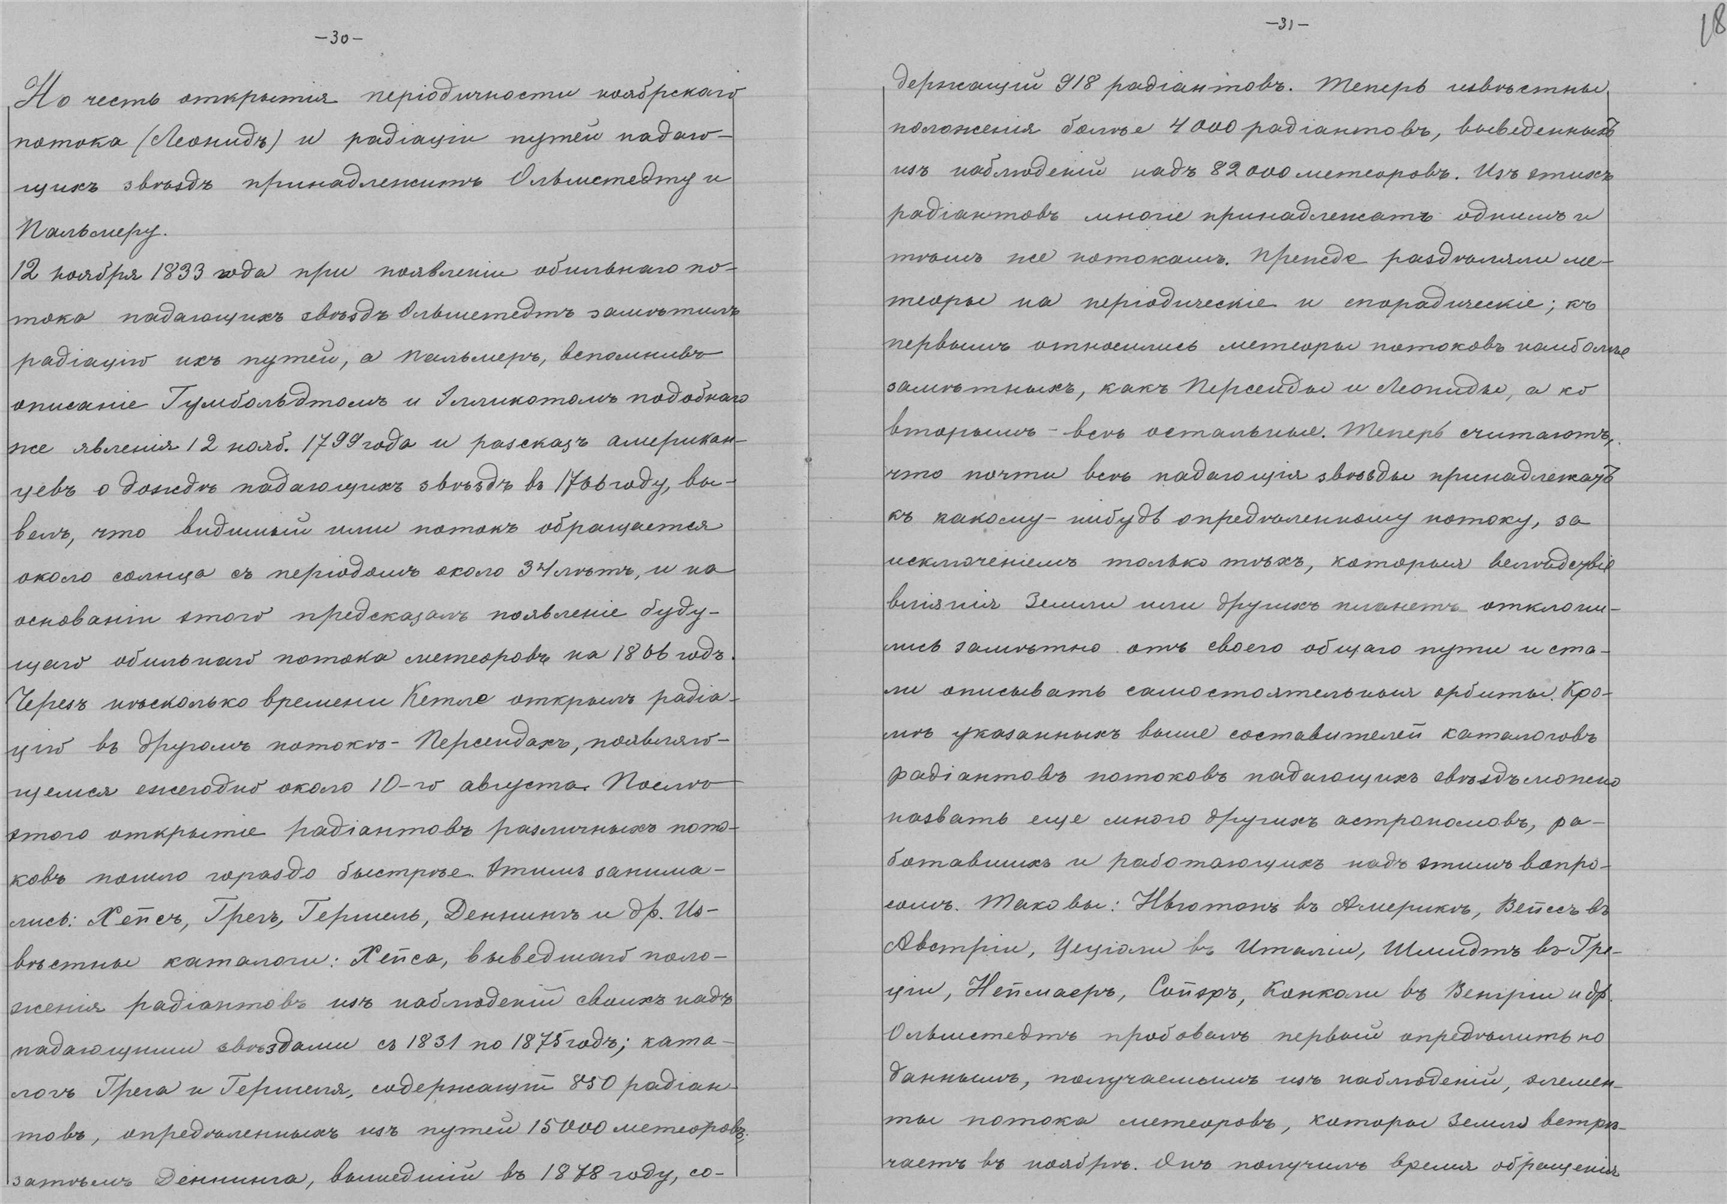 -30-
Но честь открытія періодичности ноябрскаго
потока (Леонидъ) и радіаціи путей падаю-
щихъ звѣздъ принадлежитъ Ольмстедту и
Пальмеру.
12 ноября 1833 года при появленіи обильнаго по-
тока падающихъ звѣздъ Ольмстедтъ замѣтилъ
радіацію ихъ путей, а Пальмеръ, вспомнивъ
описаніе Гумбольдтомъ и Элликотомъ подобнаго
же явленія 12 нояб. 1799 года и разсказъ американ-
цевъ о дождѣ падающихъ звѣздъ въ 1766 году, вы-
велъ, что видимый ими потокъ обращается
около солнца съ періодомъ около 34 лѣтъ, и на
основаніи этого предсказалъ появленіе буду-
щаго обильнаго потока метеоровъ на 1866 годъ.
Черезъ нѣсколько времени Кетле открылъ радіа-
цію въ другомъ потокѣ - Персеидахъ, появляю-
щемся ежегодно около 10-го августа. Послѣ
этого открытіе радіантовъ различныхъ пото-
ковъ пошло гораздо быстрѣе. Этимъ занима-
лись: Хейсъ, Грегъ, Гершель, Деннингъ и др. Из-
вѣстны каталоги: Хейса, выведшаго поло-
женія радіантовъ изъ наблюденій своихъ надъ
падающими звѣздами съ 1831 по 1875 годъ; ката-
логъ Грега и Гершеля, содержащій 850 радіан-
товъ, опредѣленныхъ изъ путей 15000 метеоровъ;
затѣмъ Деннинга, вышедшій въ 1878 году, со-
-31-
18
держащій 918 радіантовъ. Теперь извѣстны
положенія болѣе 4000 радіантовъ, выведенныхъ
изъ наблюденій надъ 82000 метеоровъ. Изъ этихъ
радіантовъ многіе принадлежатъ однимъ и
тѣмъ же потокамъ. Прежде раздѣляли ме-
теоры на періодическіе и спорадическіе; къ
первымъ относились метеоры потоковъ наиболѣе
замѣтныхъ, какъ Персеиды и Леониды, а ко
вторымъ - всѣ остальные. Теперь считаютъ,
что почти всѣ падающія звѣзды принадлежатъ
къ какому-нибудь опредѣленному потоку, за
исключеніемъ только тѣхъ, которыя вслѣдствіе
вліянія Земли или другихъ планетъ отклони-
лись замѣтно отъ своего общаго пути и ста-
ли описывать самостоятельныя орбиты. Кро-
мѣ указанныхъ выше составителей каталоговъ
радіантовъ потоковъ падающихъ звѣздъ можно
назвать еще много другихъ астрономовъ, ра-
ботавшихъ и работающихъ надъ этимъ вопро-
сомъ. Таковы: Ньютонъ въ Америкѣ, Вейсъ въ
Австріи, Цеціоли въ Италіи, Шмидтъ въ Гре-
ціи, Неймаеръ, Сойэръ, Конколи въ Венгріи и др.
Ольмстедтъ пробовалъ первый опредѣлить по
даннымъ, получаемымъ изъ наблюденій, элемен-
ты потока метеоровъ, которые Земля встрѣ-
чаетъ въ ноябрѣ. Онъ получилъ время обращенія